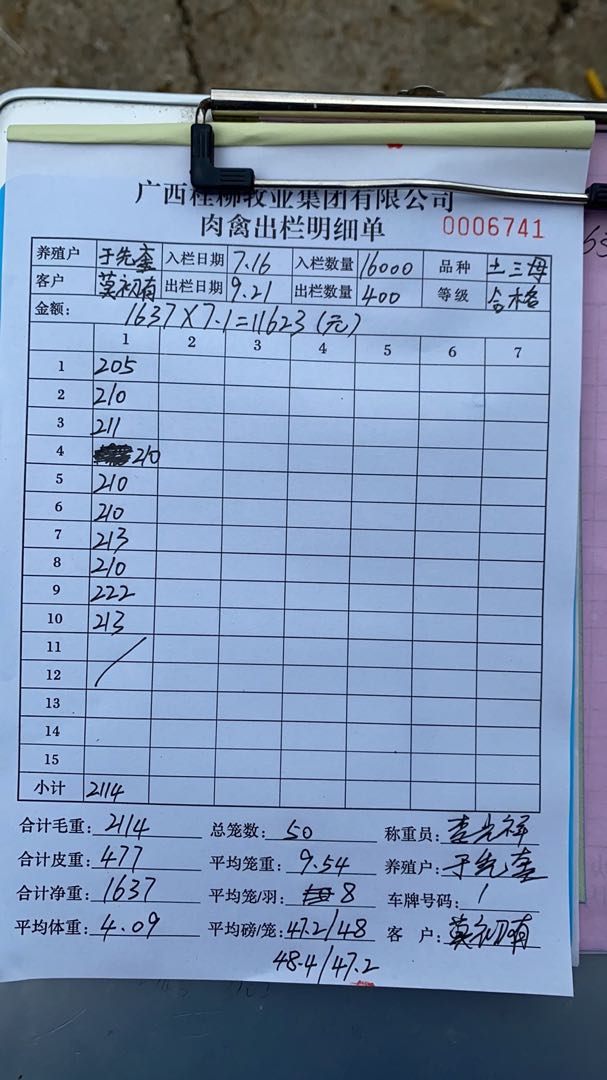 广西桂柳牧业集团有限公司
肉禽出栏明细单 0006741
养殖户 于先奎 入栏日期 7.16 入栏数量 16000 品种 土三母
客户 莫初有 出栏日期 9.21 出栏数量 400 等级 合格
金额： 1637×7.1=11623(元)
1 2 3 4 5 6 7
1 205
2 210
3 211
4 210
5 210
6 210
7 213
8 210
9 222
10 213
11
12
13
14
15
小计 2114
合计毛重：2114 总笼数：50 称重员：
合计皮重：477 平均笼重：9.54 养殖户：于先奎
合计净重：1637 平均笼/羽：8 车牌号码：1
平均体重：4.09 平均磅/笼：47.2/48 客 户：莫初有
48.4/47.2